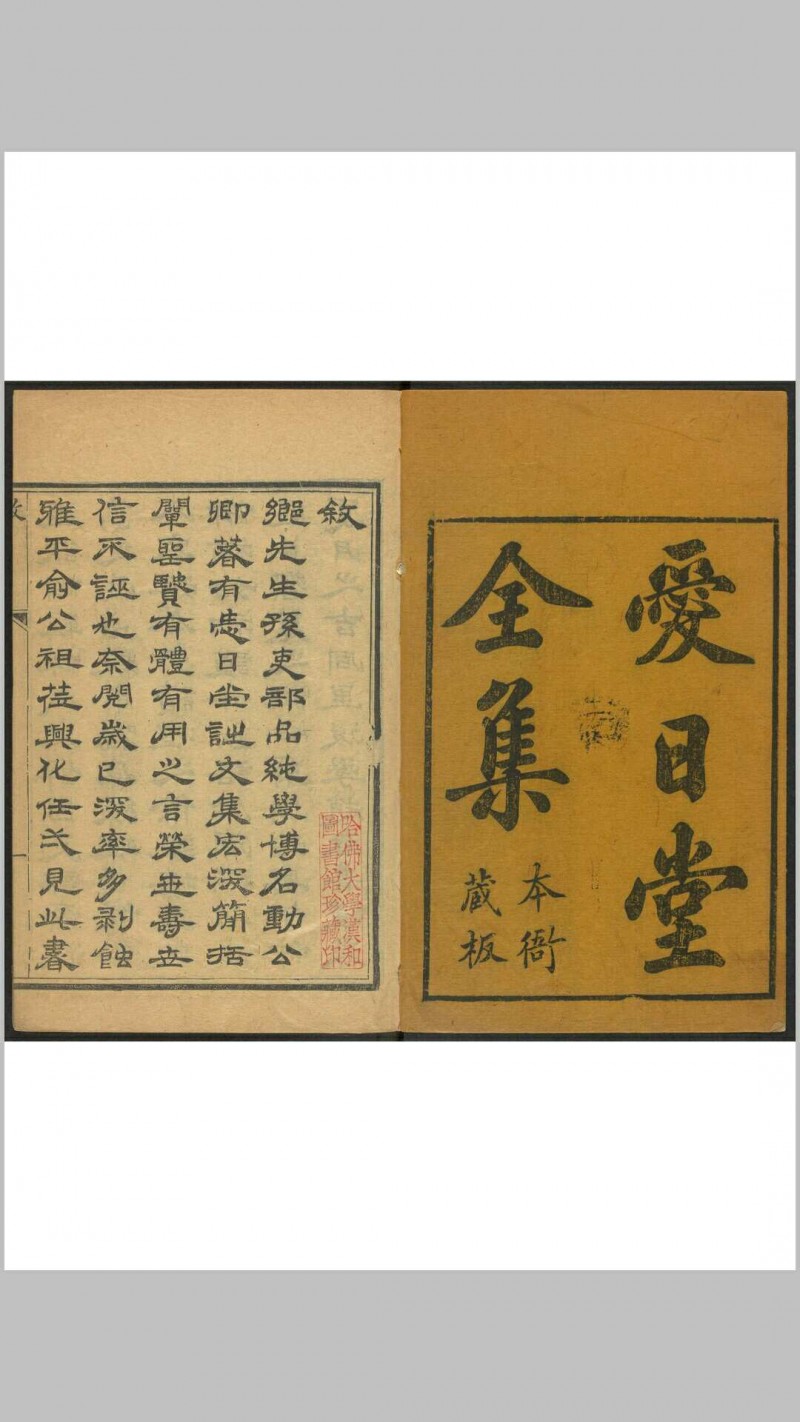 愛日堂
全集
本衙
藏板
敘
鄉先生孫吏部品純學博名動公
卿著有愛日堂詩文集宏深簡括
闡聖賢有體有用之言榮世壽世
信不誣也奈閱歲已深率多剥蝕
雅平俞公祖莅興化任弌見此書
哈佛大學漢和
圖書館珍藏印